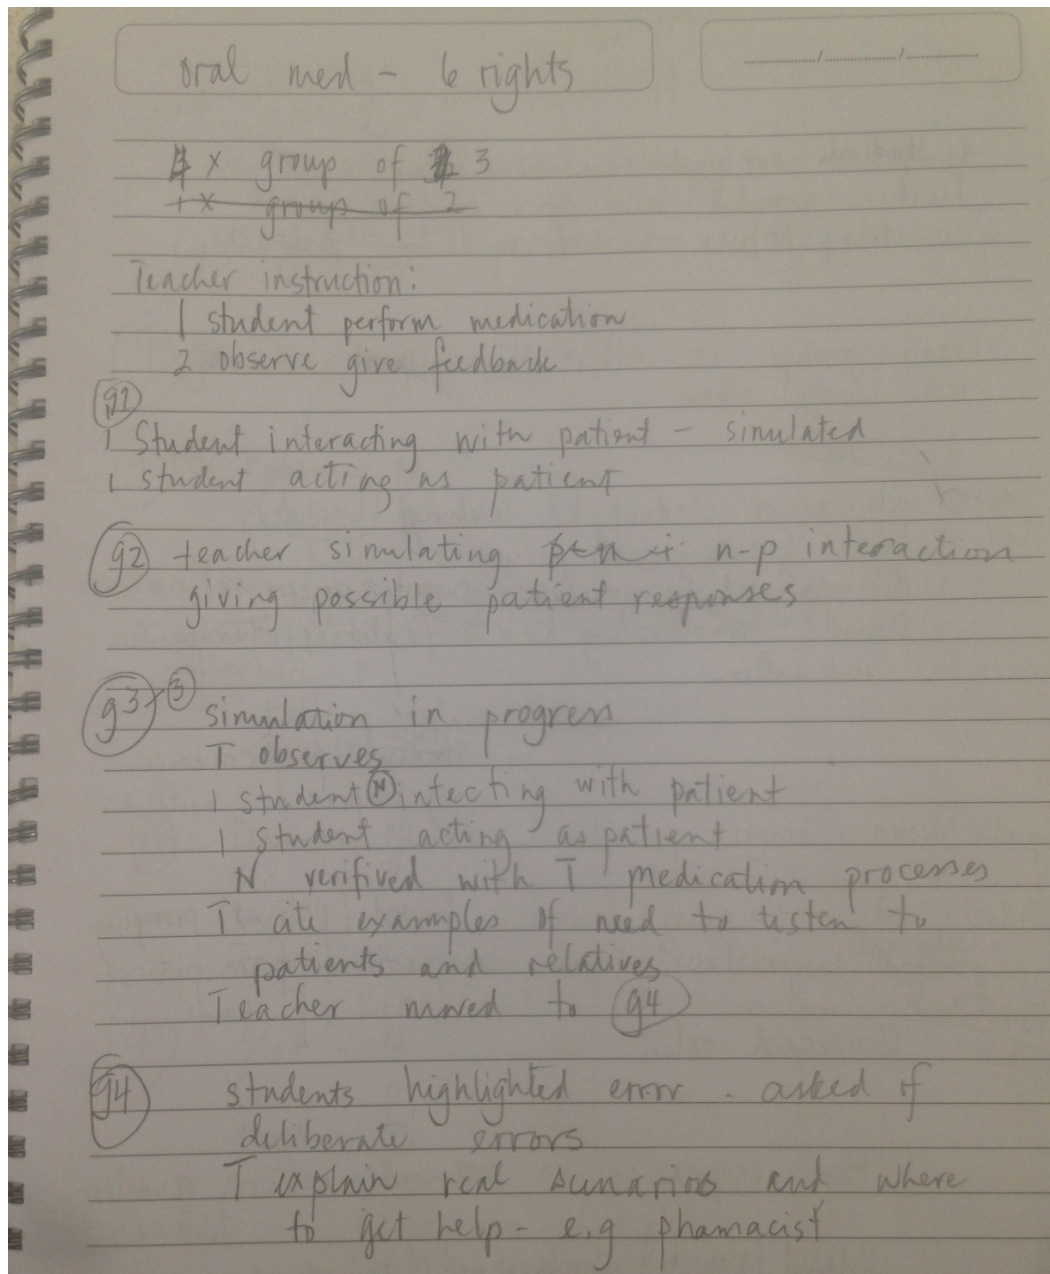 oral med - 6 rights
4 x group of 3
1 x group of 2
Teacher instruction:
1 student perform medication
2 observe give feedback
g1
1 Student interacting with patient - simulated
1 student acting as patient
g2 teacher simulating n-p interaction
giving possible patient responses
g3 - 3
simulation in progress
T observes
1 student N intecting with patient
1 student acting as patient
N verifived with T medication processes
T cite examples of need to listen to
patients and relatives
Teacher moved to g4
g4 students highlighted error. asked if
deliberate errors
T explain real scunarios and where
to get help - e.g phamacist